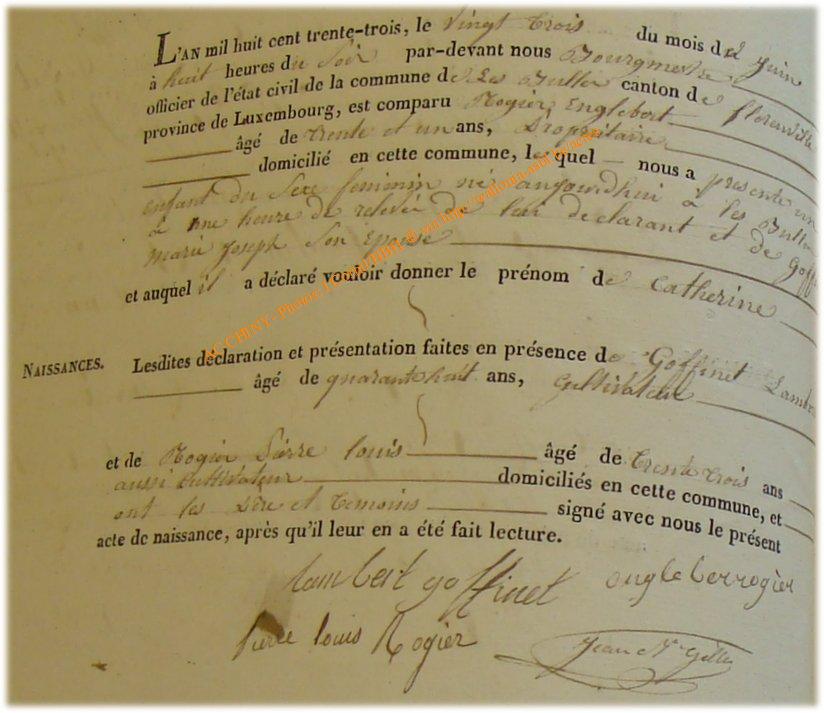 L'AN mil huit cent trente-trois, le vingt trois du mois de juin
à huit heures du soir par-devant nous Bourgmestre
officier de l'état civil de la commune de Les Bulles canton de florenville
province de Luxembourg, est comparu Rogier Englebert
âgé de trente et un ans, propriétaire
domicilié en cette commune, lequel nous a présenté un
enfant du sexe féminin né aujourdhui à les Bulles
à une heure de relevée de lui déclarant et de Goffi
marie joseph son épouse
et auquel il a déclaré vouloir donner le prénom de Catherine
NAISSANCES.
Lesdites déclaration et présentation faites en présence de Goffinet Lambe
âgé de quarante huit ans, Cultivateur
et de Rogier Pierre louis âgé de trente trois ans
aussi Cultivateur domiciliés en cette commune, et
ont les père et témoins signé avec nous le présent
acte de naissance, après qu'il leur en a été fait lecture.
lambert goffinet ongleber rogier
pierre louis Rogier Jean